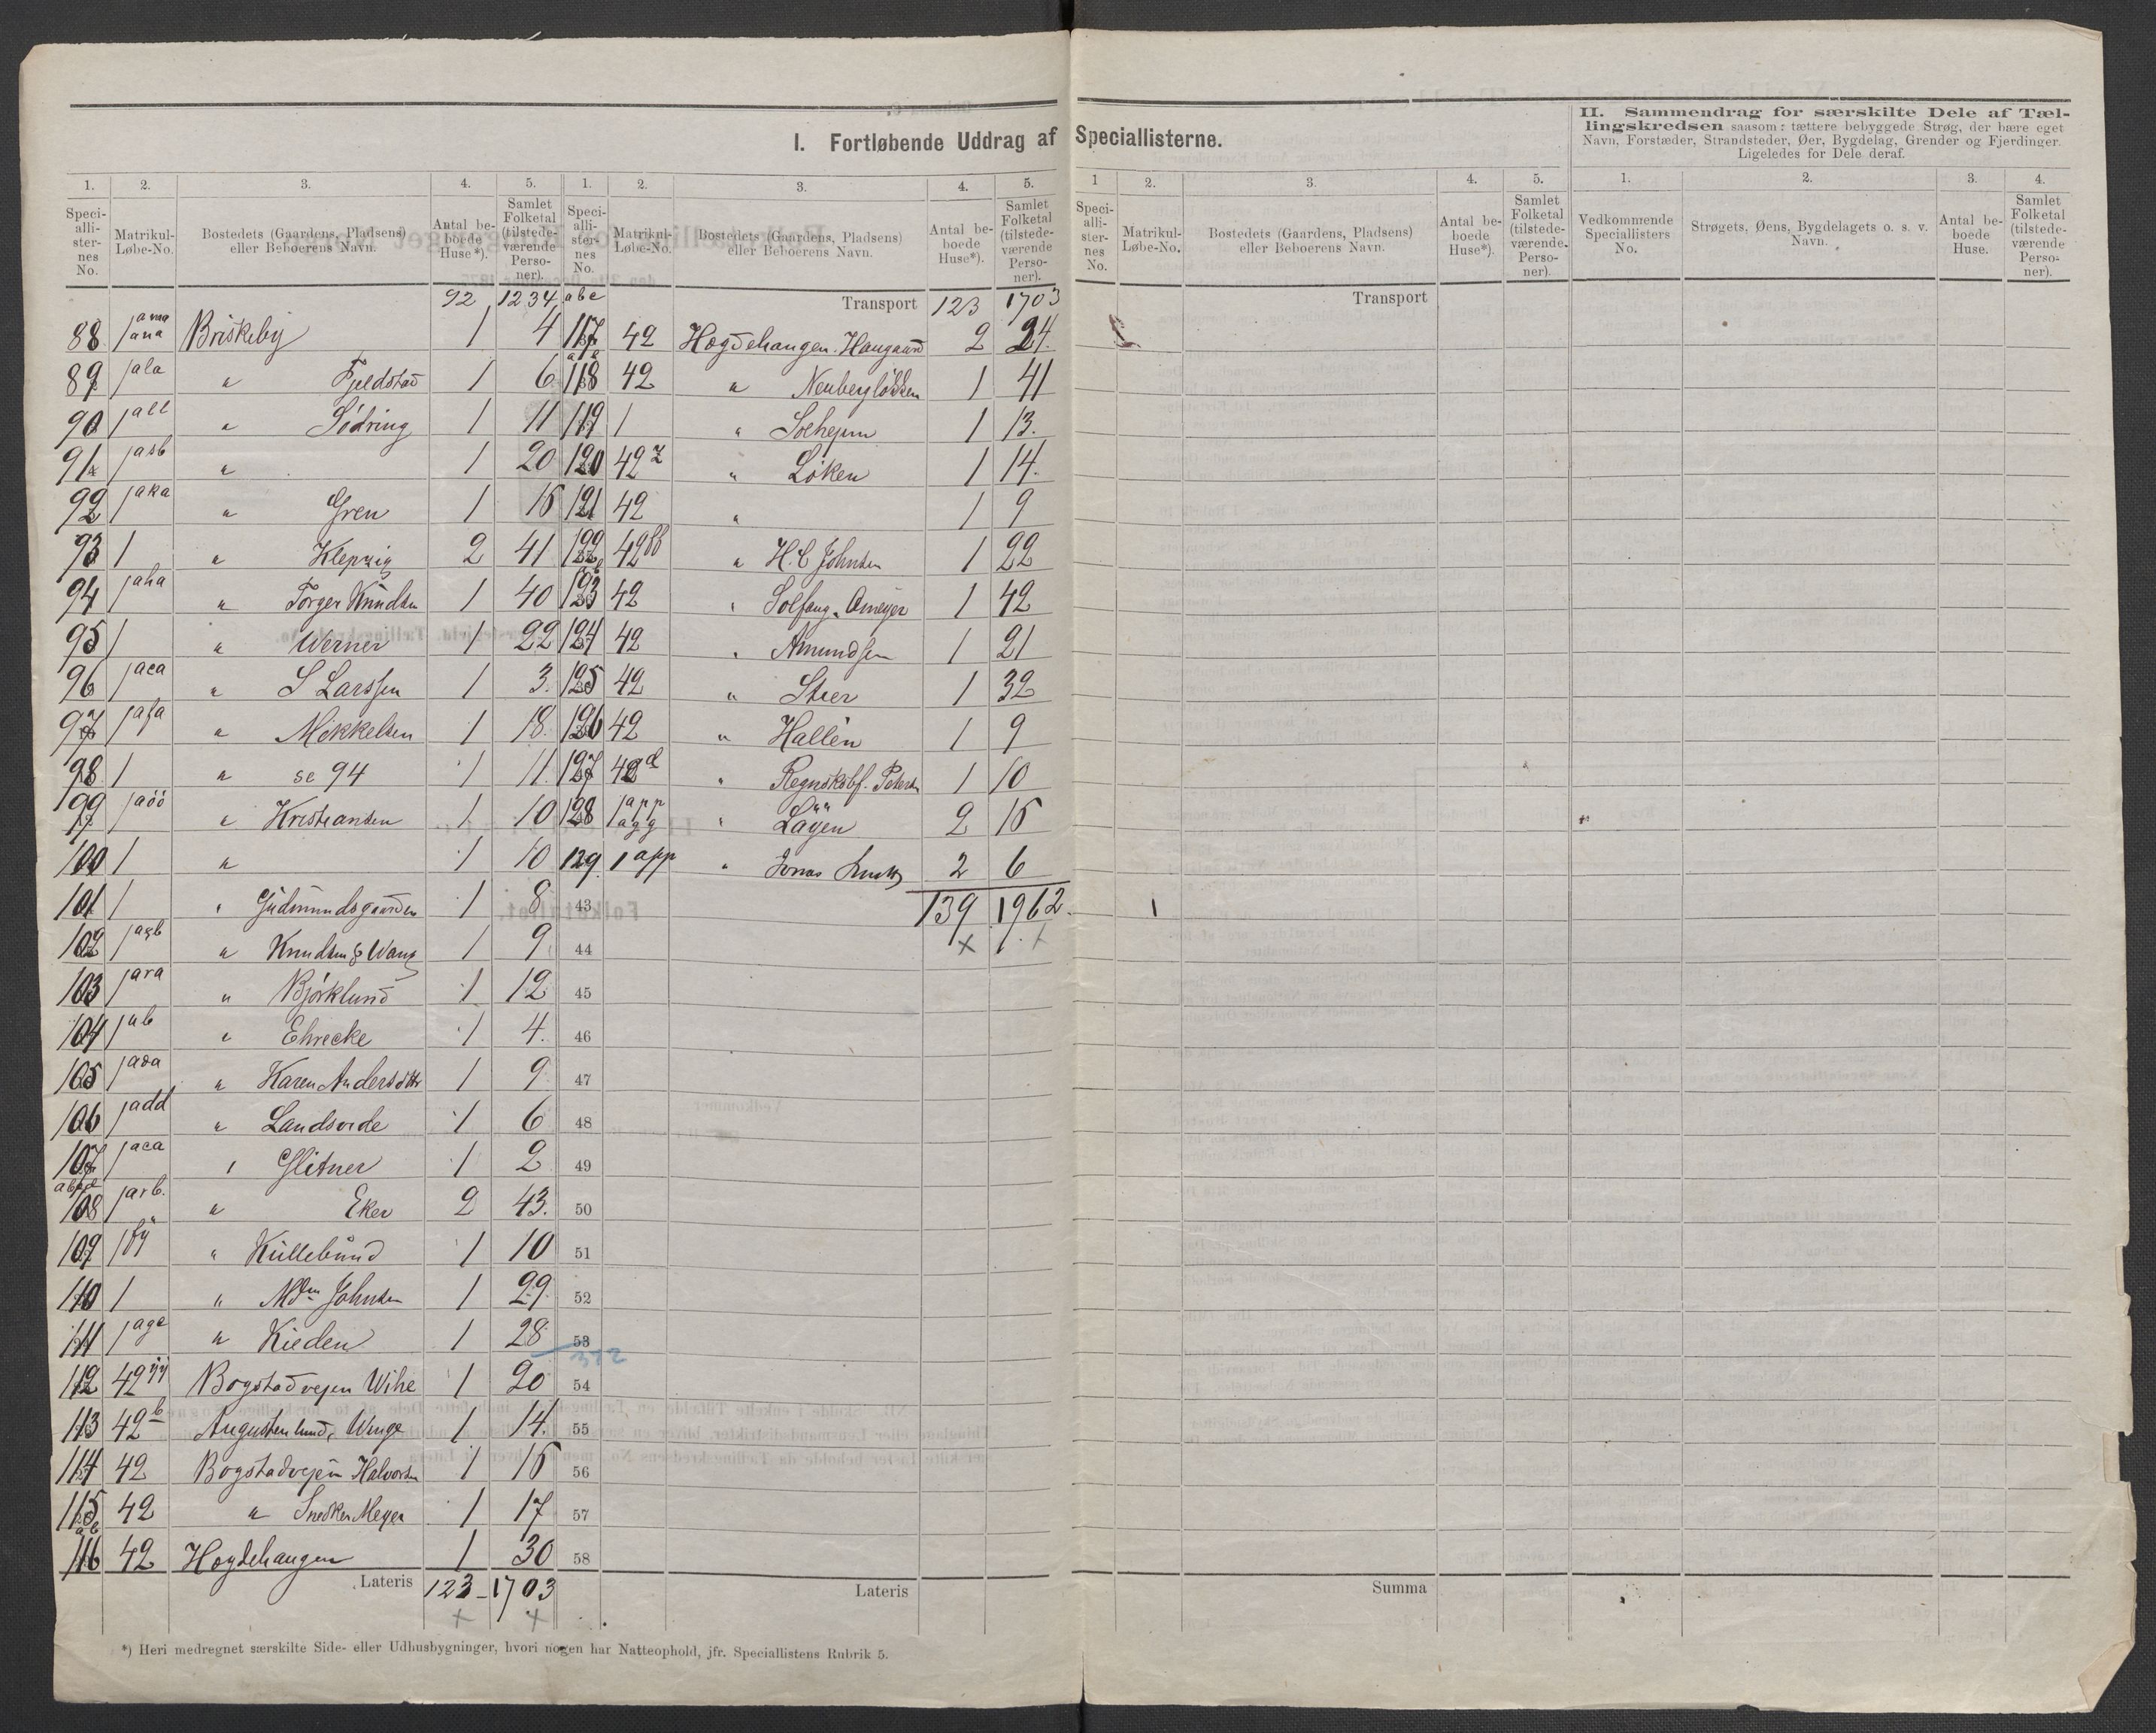 I. Fortløbende Uddrag af Speciallisterne.
II. Sammendrag for særskilte Dele af Tællingskredsen saasom: tættere bebyggede Strøg, der bære eget Navn, Forstæder, Strandsteder, Øer, Bygdelag, Grender og Fjerdinger. Ligeledes for Dele deraf.
1. 2. 3. 4. 5.
Speciallisternes No. Matrikul-Løbe-No. Bostedets (Gaardens, Pladsens) eller Beboerens Navn. Antal beboede Huse*). Samlet Folketal (tilstedeværende Personer).
92 1234
88 Briskeby 1 4
89 jala " Fjeldstad 1 6
90 " Södring 1 11
91 jasb " 1 20
92 jaka " Gren 1 15
93 1 " Klepzig 2 41
94 jaha " Torger Knudsen 1 40
95 1 " Werner 1 22
96 jaca " S Larssen 1 3.
97 jafa " Mikkelsen 1 18.
98 1 " se 94 1 11
99 jaöö " Kristiansen 1 10
100 1 " 1 10
101 1 " Gudmundsgaarden 1 8
102 jaqb " Knudsen & Wang 1 9
103 jara " Björklund 1 12
104 jab " Ehrecke 1 4.
105 jada " Karen Andersdtr 1 9
106 jadd " Landsvide 1 6
107 jaea " Glitner 1 2
108 jarb. " Eker 2 43.
109 " Kullebund 1 10
110 1 " Mdm Johnsen 1 29
111 jage " Kieden 1 28
112 42 yy Bogstadveien Wihe 1 20
113 42 b Augustenlund, Winge 1 14.
114 42 Bogstadvejen Halvorsen 1 15
115 42 " Snedker Meyer 1 17
116 42 Hogdehaugen 1 30
Lateris 123 - 1703
1. 2. 3. 4. 5.
Speciallisternes No. Matrikul-Løbe-No. Bostedets (Gaardens, Pladsens) eller Beboerens Navn. Antal beboede Huse*). Samlet Folketal (tilstedeværende Personer).
abc Transport 123 1703
117 42 Hogdehaugen. Haugaard 2 24.
118 42 " Neuberglökken 1 41
119 1 " Solhejm 1 13.
120 42 z " Löken 1 14.
121 42 " 1 9
122 42 " H. C Johnsen 1 22
123 42 " Solfang. Ameyer 1 42
124 42 " Amundsen 1 21
125 42 " Steer 1 32
126 42 " Hallén 1 9
127 42 d " 1 10
128 1 app agg " 2 15
129. 1 app " Jonas 2 6
43 139 1962.
44
45
46
47
48
49
50
51
52
53
312
54
55
56
57
58
Lateris
1 2. 3. 4. 5.
Speciallisternes No. Matrikul-Løbe-No. Bostedets (Gaardens, Pladsens) eller Beboerens Navn. Antal beboede Huse*). Samlet Folketal (tilstedeværende Personer).
Transport
Summa
1. 2. 3. 4.
Vedkommende Speciallisters No. Strøgets, Øens, Bygdelagets o. s. v. Navn. Antal beboede Huse. Samlet Folketal (tilstedeværende Personer).
*) Heri medregnet særskilte Side- eller Udhusbygninger, hvori nogen har Natteophold, jfr. Speciallistens Rubrik 5.